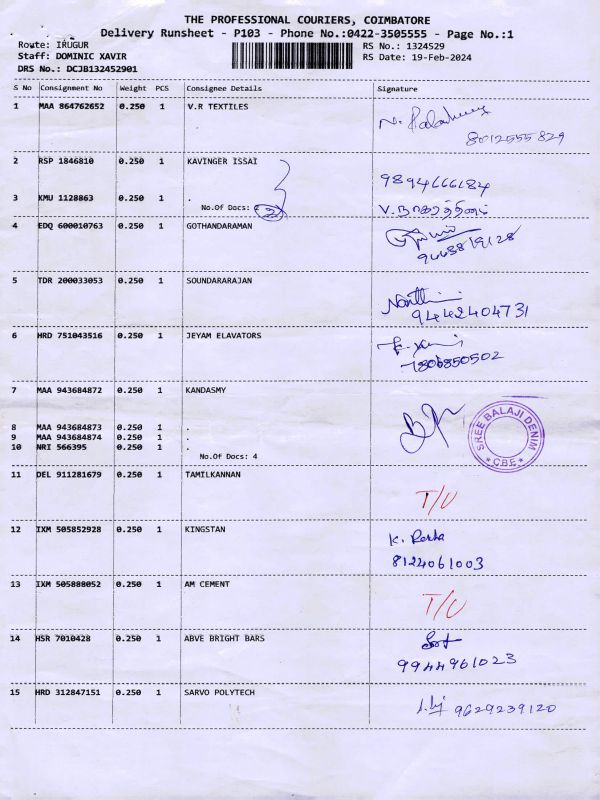 THE PROFESSIONAL COURIERS, COIMBATORE
Delivery Runsheet - P103 - Phone No.:0422-3505555 - Page No.:1
Route: IRUGUR RS No.: 1324529
Staff: DOMINIC XAVIR RS Date: 19-Feb-2024
DRS No.: DCJB132452901
S No Consignment No Weight PCS Consignee Details Signature
1 MAA 864762652 0.250 1 V.R TEXTILES
8012555829
2 RSP 1846810 0.250 1 KAVINGER ISSAI
9894666184
3 KMU 1128863 0.250 1 .
No.Of Docs: 2 2 V. நாகரத்தினம்
4 EDQ 600010763 0.250 1 GOTHANDARAMAN
9663819128
5 TDR 200033053 0.250 1 SOUNDARARAJAN
Nanthini
9442404731
6 HRD 751043516 0.250 1 JEYAM ELAVATORS
7806850502
7 MAA 943684872 0.250 1 KANDASMY
SREE BALAJI DENIM
* CBE *
8 MAA 943684873 0.250 1 .
9 MAA 943684874 0.250 1 .
10 NRI 566395 0.250 1 .
No.Of Docs: 4
11 DEL 911281679 0.250 1 TAMILKANNAN
T/U
12 IXM 505852928 0.250 1 KINGSTAN
K. Rekha
8124061003
13 IXM 505888052 0.250 1 AM CEMENT
T/U
14 HSR 7010428 0.250 1 ABVE BRIGHT BARS
9944961023
15 HRD 312847151 0.250 1 SARVO POLYTECH
9629239120